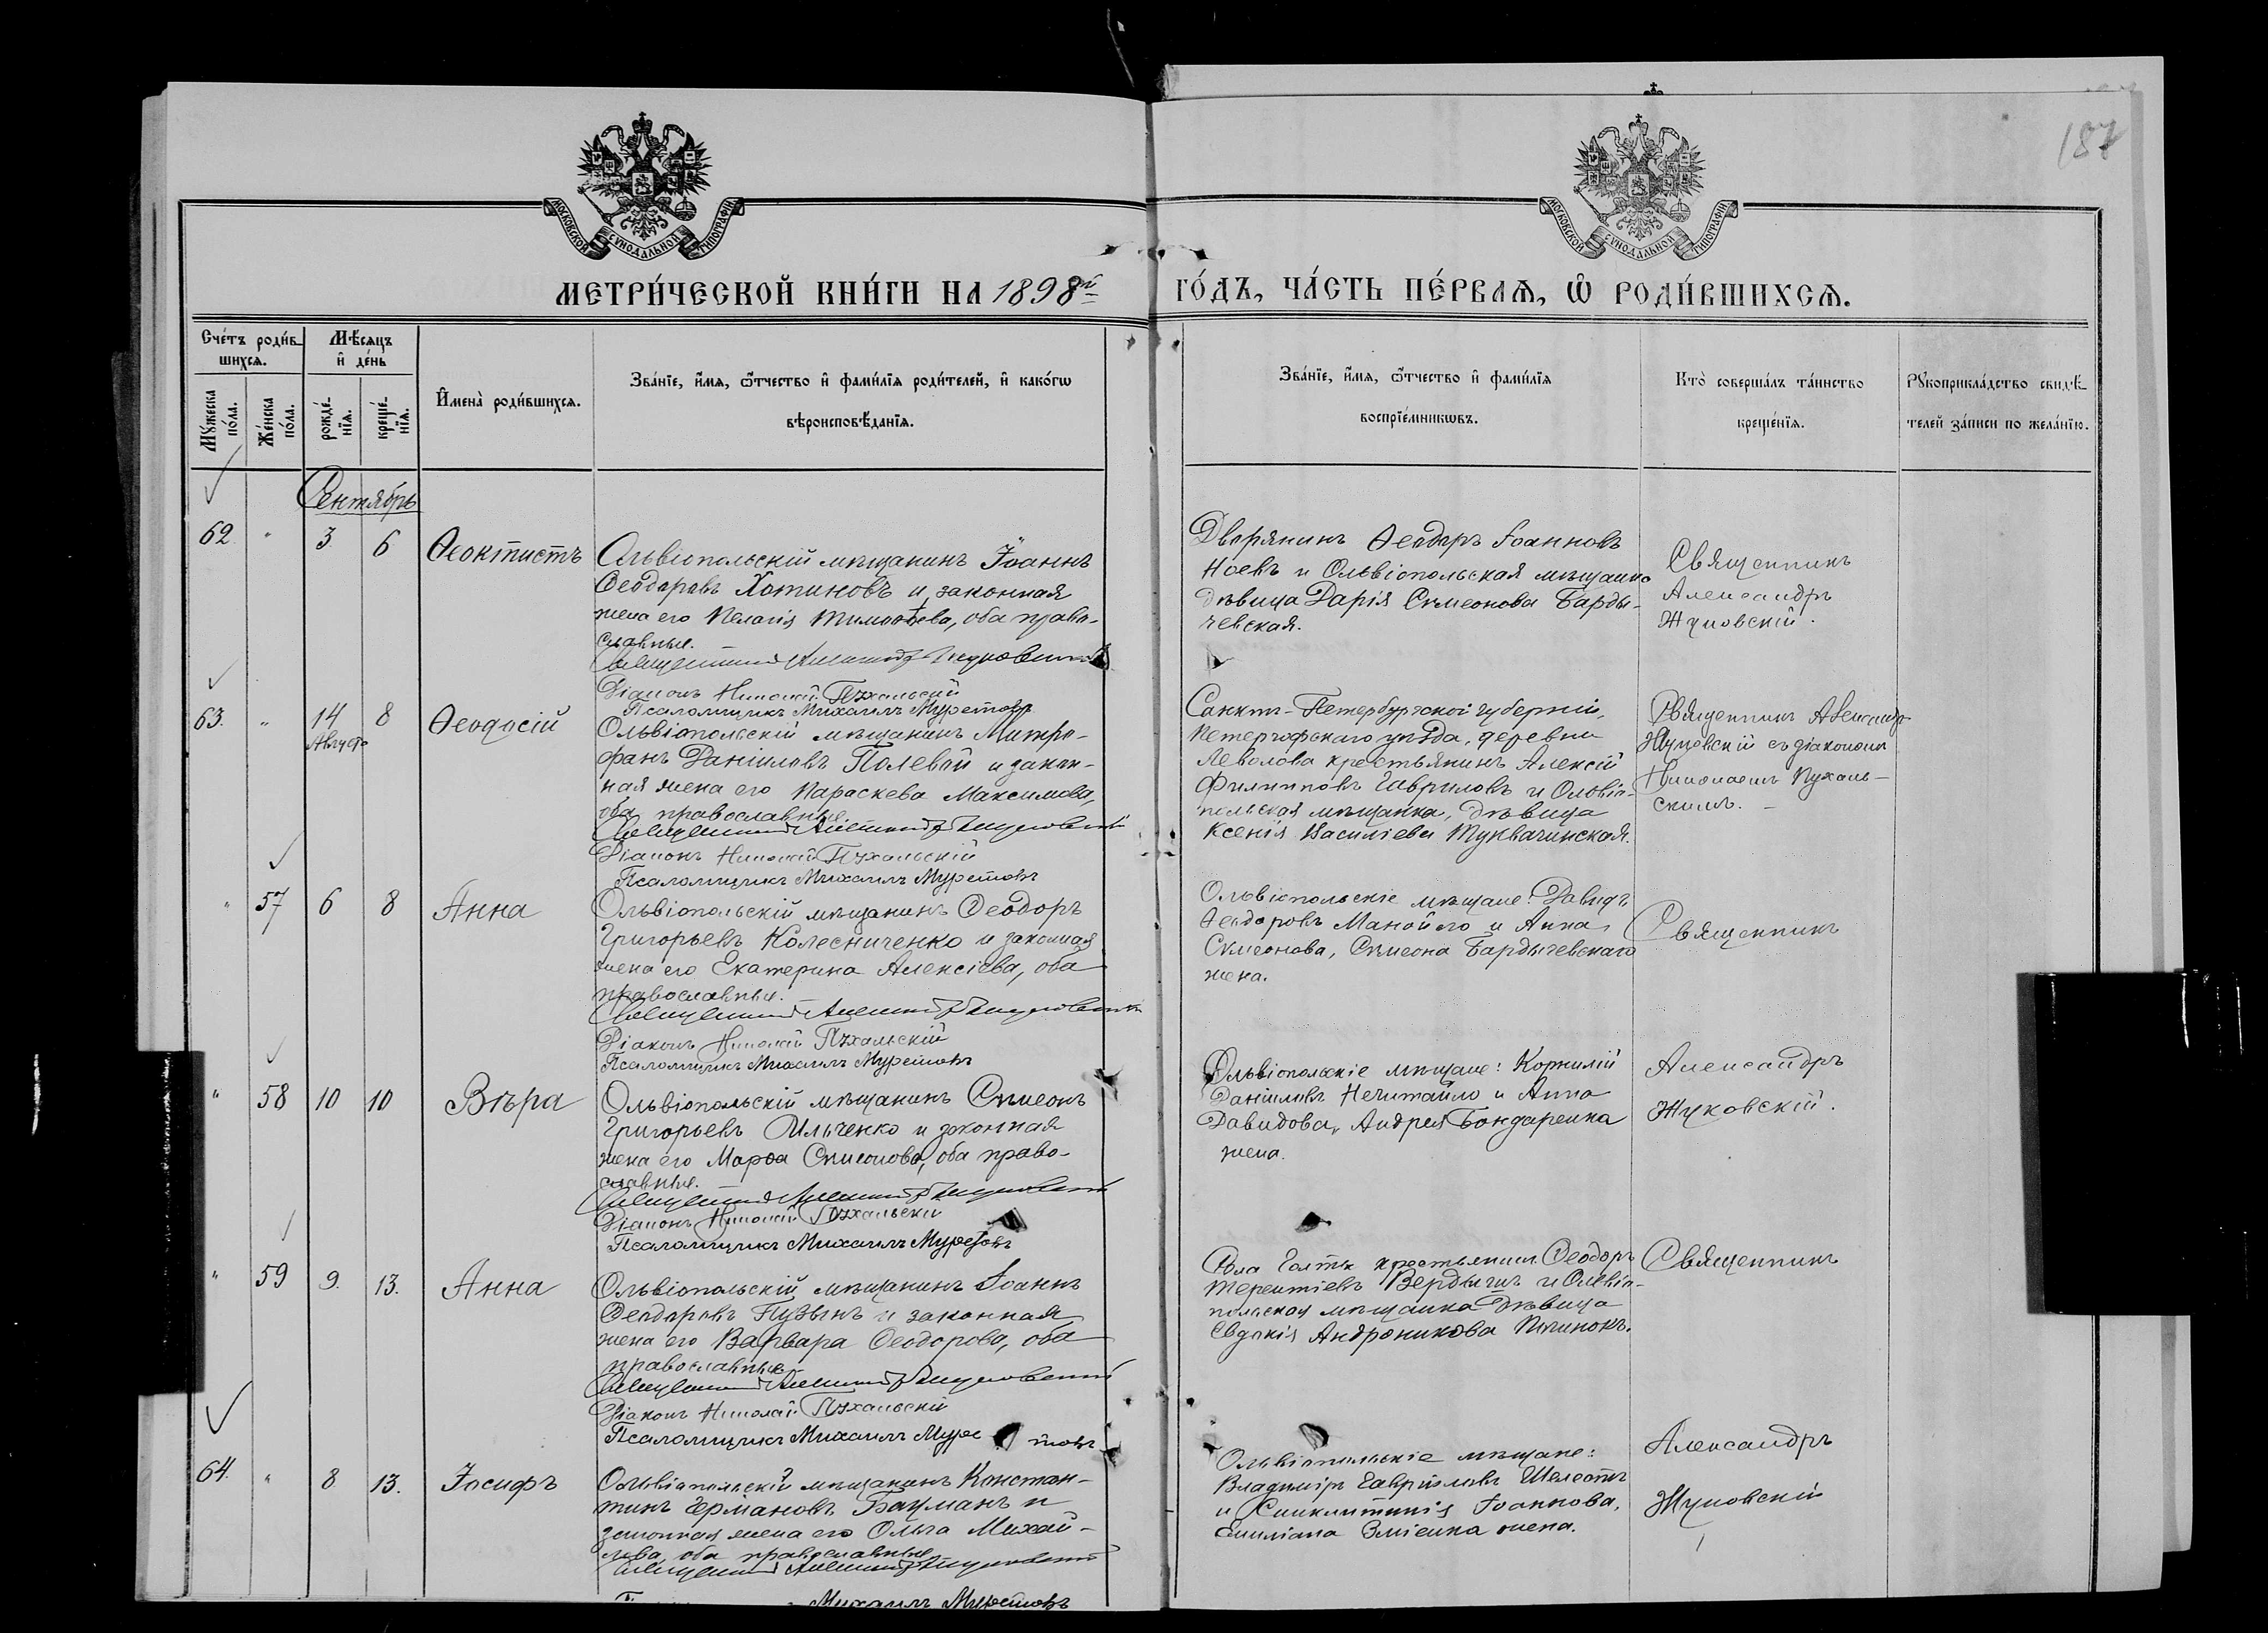 187
МОСКОВСКОЙ СѴНОДАЛЬНОЙ ТИПОГРАФІИ
МОСКОВСКОЙ СѴНОДАЛЬНОЙ ТИПОГРАФІИ
МЕТРИ́ЧЕСКОЙ КНИ́ГИ НА 1898й
ГО́ДЪ, ЧА́СТЬ ПЕ́РВАѦ, Ѽ РОДИ́ВШИХСѦ.
Сче́тъ роди́вшихсѧ.
Мѣ́сѧцъ и҆ де́нь
Мꙋ́жеска по́ла.
Же́нска по́ла.
рожде́нїѧ.
креще́нїѧ.
И҆мена̀ роди́вшихсѧ.
Зва́нїе, и҆́мѧ, ѻ҆́тчество и҆ фами́лїѧ роди́телей, и҆ како́гѡ
вѣроисповѣ́данїѧ.
Зва́нїе, и҆́мѧ, ѻ҆́тчество и҆ фами́лїѧ
воспрїе́мникѡвъ.
Кто̀ соверша́лъ та́инство
креще́нїѧ.
Рꙋкоприкла́дство свидѣ́-
телей за́писи по жела́нїю.
Сентябрь
62. " 3 6 Ѳеоктистъ
Ольвіопольскій мѣщанинъ Іоаннъ
Ѳеодоровъ Хотиновъ и законная
жена его Пелагія Тимоѳеева, оба право-
славные.
Священникъ Александръ Жуковскій
Діаконъ Николай Пухальскій
Псаломщикъ Михаилъ Муретовъ
Дворянинъ Ѳеодоръ Іоанновъ
Ноевъ и Ольвіопольская мѣщанка
дѣвица Дарія Симеонова Барды-
чевская.
Священникъ
Александръ
Жуковскій.
63. " 14 8 Ѳеодосій
Августа
Ольвіопольскій мѣщанинъ Митро-
фанъ Даніиловъ Полевой и закон-
ная жена его Параскева Максимова,
оба православные.
Священникъ Александръ Жуковскій
Діаконъ Николай Пухальскій
Псаломщикъ Михаилъ Муретовъ
Санктъ-Петербургской губерніи,
Петергофскаго уѣзда, деревни
крестьянинъ Алексій
Филипповъ Гавриловъ и Ольвіо-
польская мѣщанка, дѣвица
Ксенія Василіева Туквачинская.
Священникъ Александръ
Жуковскій съ діакономъ
Николаемъ Пухаль-
скимъ.
" 57 6 8 Анна
Ольвіопольскій мѣщанинъ Ѳеодоръ
Григорьевъ Колесниченко и законная
жена его Екатерина Алексіева, оба
православные.
Священникъ Александръ Жуковскій
Діаконъ Николай Пухальскій
Псаломщикъ Михаилъ Муретовъ
Ольвіопольскіе мѣщане: Давидъ
Ѳеодоровъ Манойло и Анна
Симеонова, Симеона Бардычевскаго
жена.
Священникъ
" 58 10 10 Вѣра
Ольвіопольскій мѣщанинъ Симеонъ
Григорьевъ Ильченко и законная
жена его Марѳа Симеонова, оба право-
славные.
Священникъ Александръ Жуковскій
Діаконъ Николай Пухальскій
Псаломщикъ Михаилъ Муретовъ
Ольвіопольскіе мѣщане: Корнилій
Даніиловъ Нечитайло и Анна
Давидова, Андрея Бондаренка
жена.
Александръ
Жуковскій.
" 59 9. 13. Анна
Ольвіопольскій мѣщанинъ Іоаннъ
Ѳеодоровъ Пузынъ и законная
жена его Варвара Ѳеодорова, оба
православные.
Священникъ Александръ Жуковскій
Діаконъ Николай Пухальскій
Псаломщикъ Михаилъ Муретовъ
Села Голты крестьянинъ Ѳеодоръ
Терентіевъ Вердышъ и Ольвіо-
польская мѣщанка дѣвица
Евдокія Андроникова
Священникъ
64. " 8 13. Іосифъ
Ольвіопольскій мѣщанинъ Констан-
тинъ Германовъ Бауманъ и
законная жена его Ольга Михай-
лова, оба православные
Священникъ Александръ Жуковскій
Михаилъ Муретовъ
Ольвіопольскіе мѣщане:
Владиміръ Гавріиловъ Шелестъ
и Синклитикія Іоаннова,
Емиліана Зміенка жена.
Александръ
Жуковскій